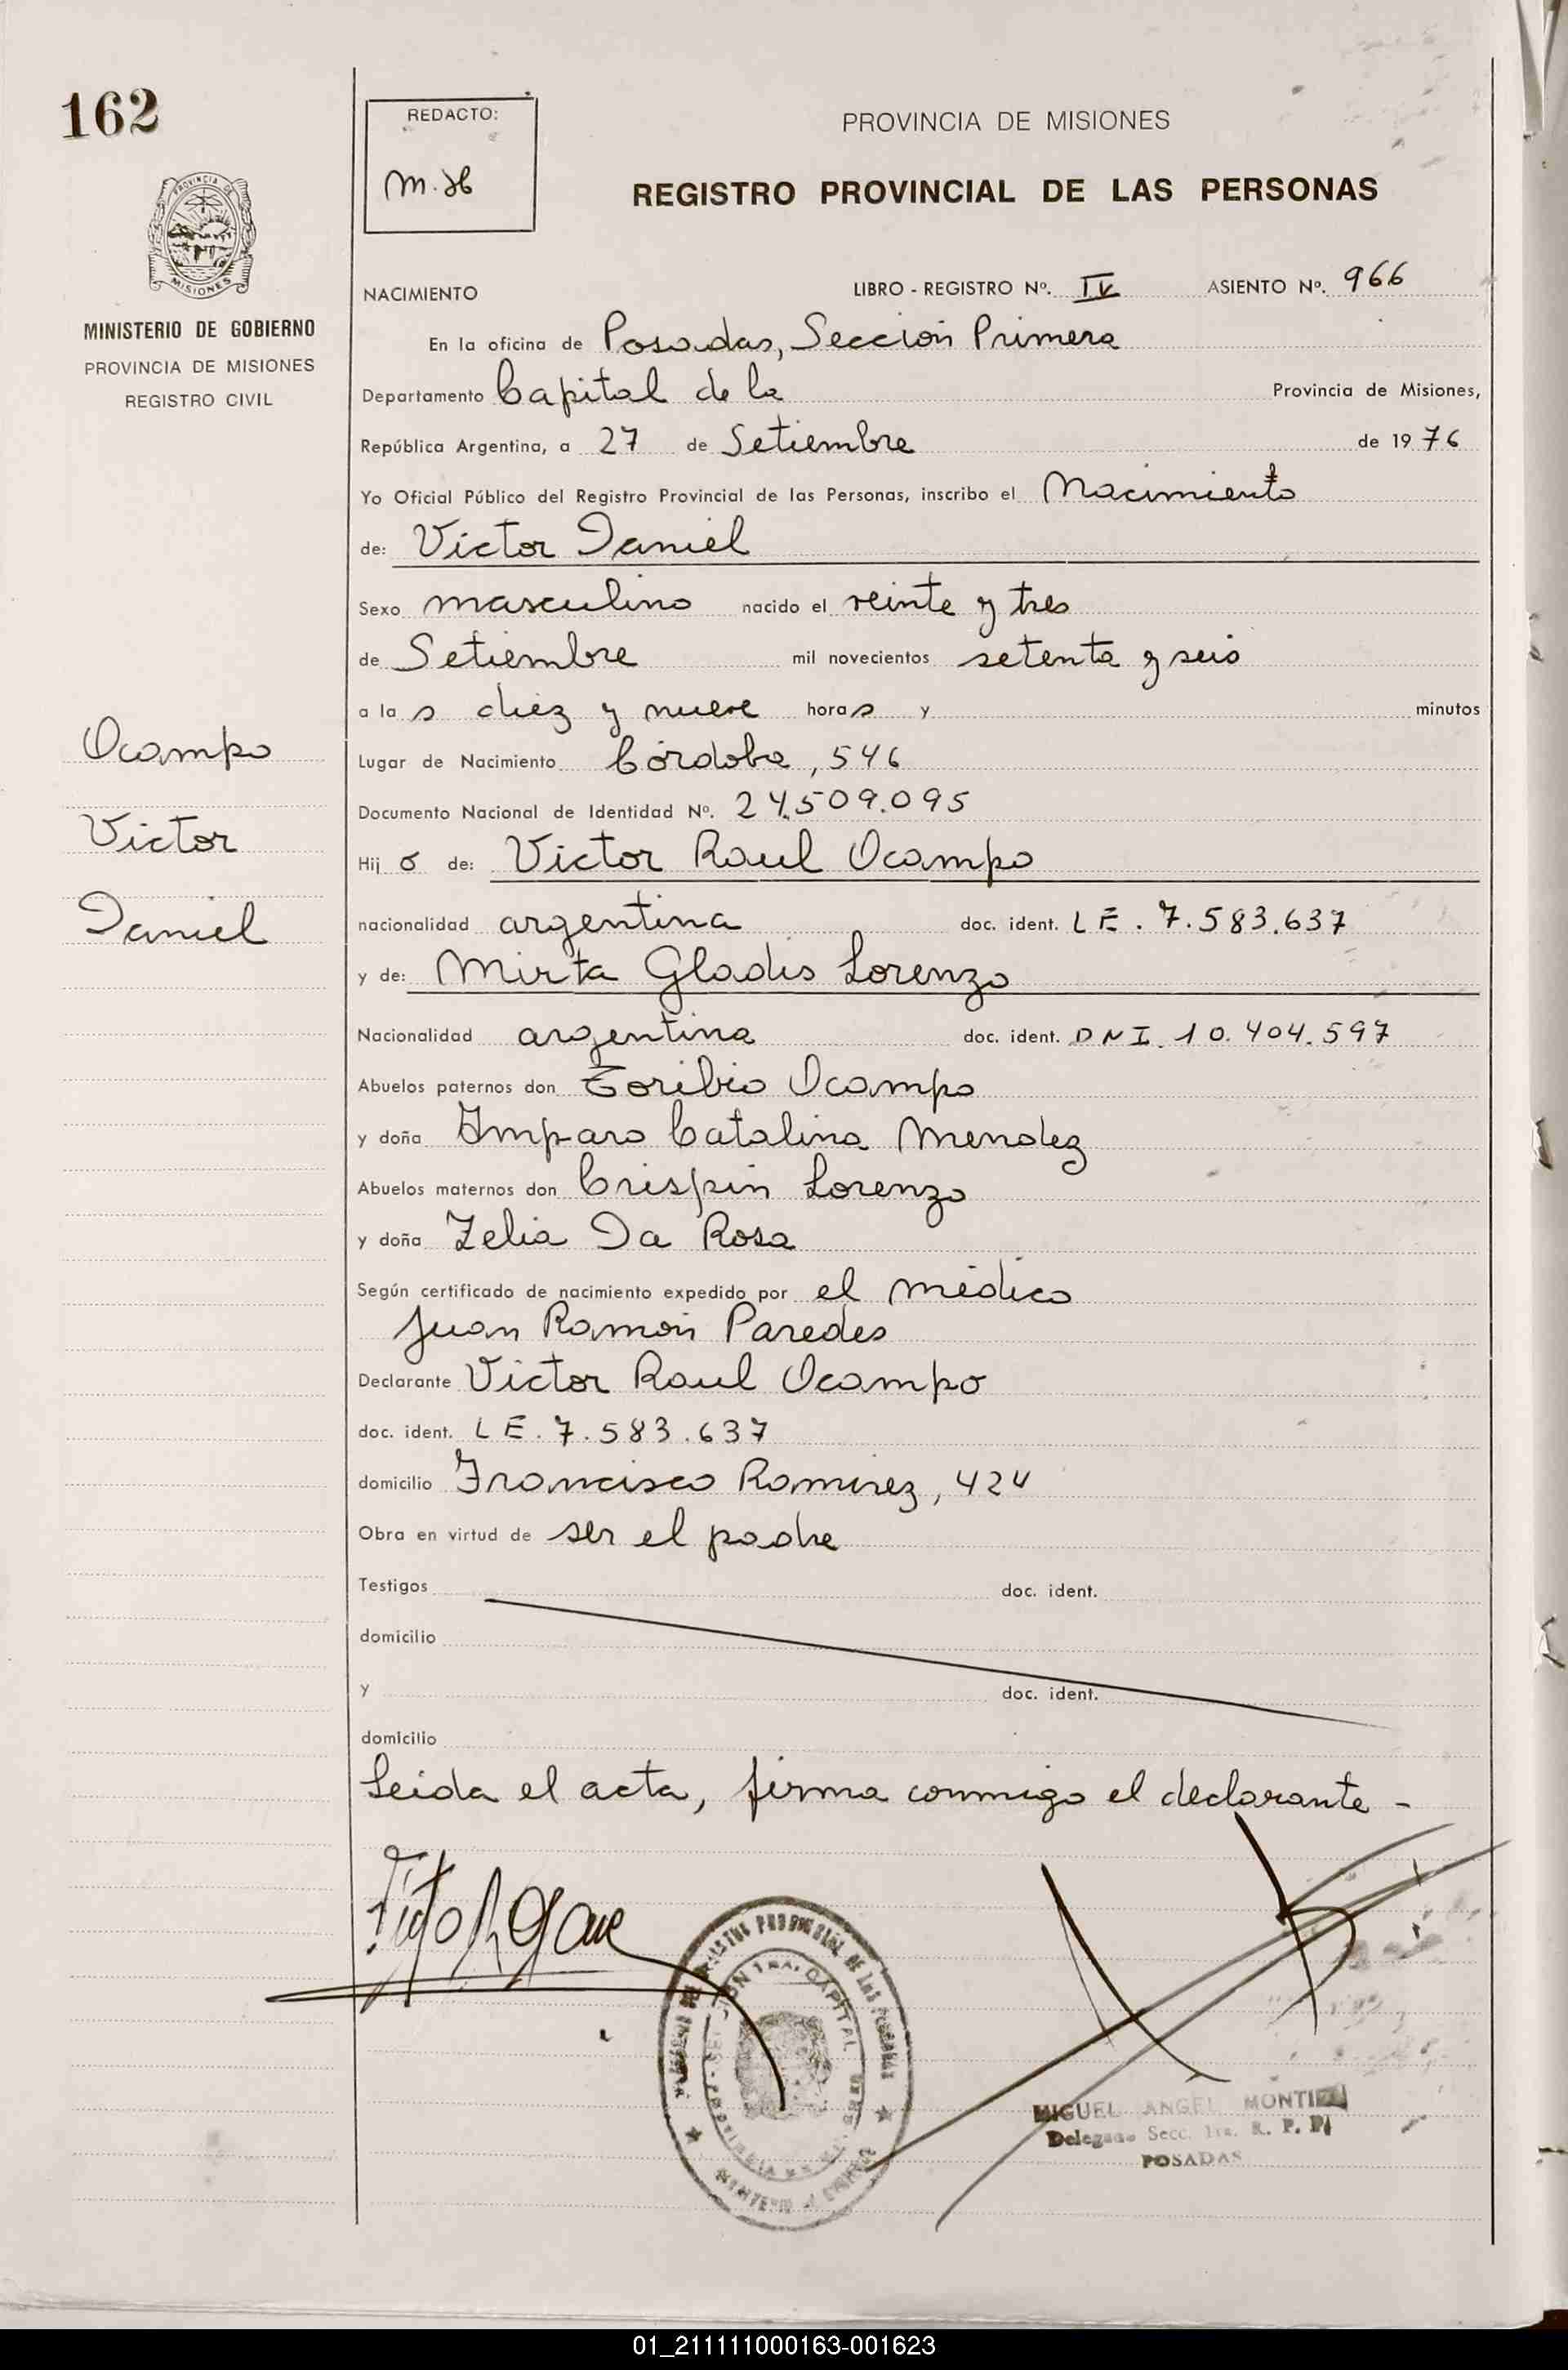 162
REDACTO:
M. H
PROVINCIA DE MISIONES
REGISTRO PROVINCIAL DE LAS PERSONAS
PROVINCIA DE
MISIONES
MINISTERIO DE GOBIERNO
PROVINCIA DE MISIONES
REGISTRO CIVIL
NACIMIENTO LIBRO - REGISTRO Nº. IV ASIENTO Nº. 966
En la oficina de Posadas, Sección Primera
Departamento Capital de la Provincia de Misiones,
República Argentina, a 27 de Setiembre de 1976
Yo Oficial Público del Registro Provincial de las Personas, inscribo el Nacimiento
de: Victor Daniel
Sexo masculino nacido el veinte y tres
de Setiembre mil novecientos setenta y seis
a las diez y nueve horas y minutos
Lugar de Nacimiento Córdoba, 546
Documento Nacional de Identidad Nº. 24.509.095
Hijo de: Victor Raul Ocampo
nacionalidad argentina doc. ident. LE. 7.583.637
y de: Mirta Gladis Lorenzo
Nacionalidad argentina doc. ident. DNI. 10.404.597
Abuelos paternos don Toribio Ocampo
y doña Amparo Catalina Mendez
Abuelos maternos don Crispin Lorenzo
y doña Zelia Da Rosa
Según certificado de nacimiento expedido por el médico
Juan Ramón Paredes
Declarante Victor Raul Ocampo
doc. ident. LE. 7.583.637
domicilio Francisco Ramirez, 424
Obra en virtud de ser el padre
Testigos doc. ident.
domicilio
y doc. ident.
domicilio
Leida el acta, firma conmigo el declarante -
Ocampo
Victor
Daniel
MIGUEL ANGEL MONTIEL
Delegado Secc. 1ra. R. P. P.
POSADAS
01_211111000163-001623